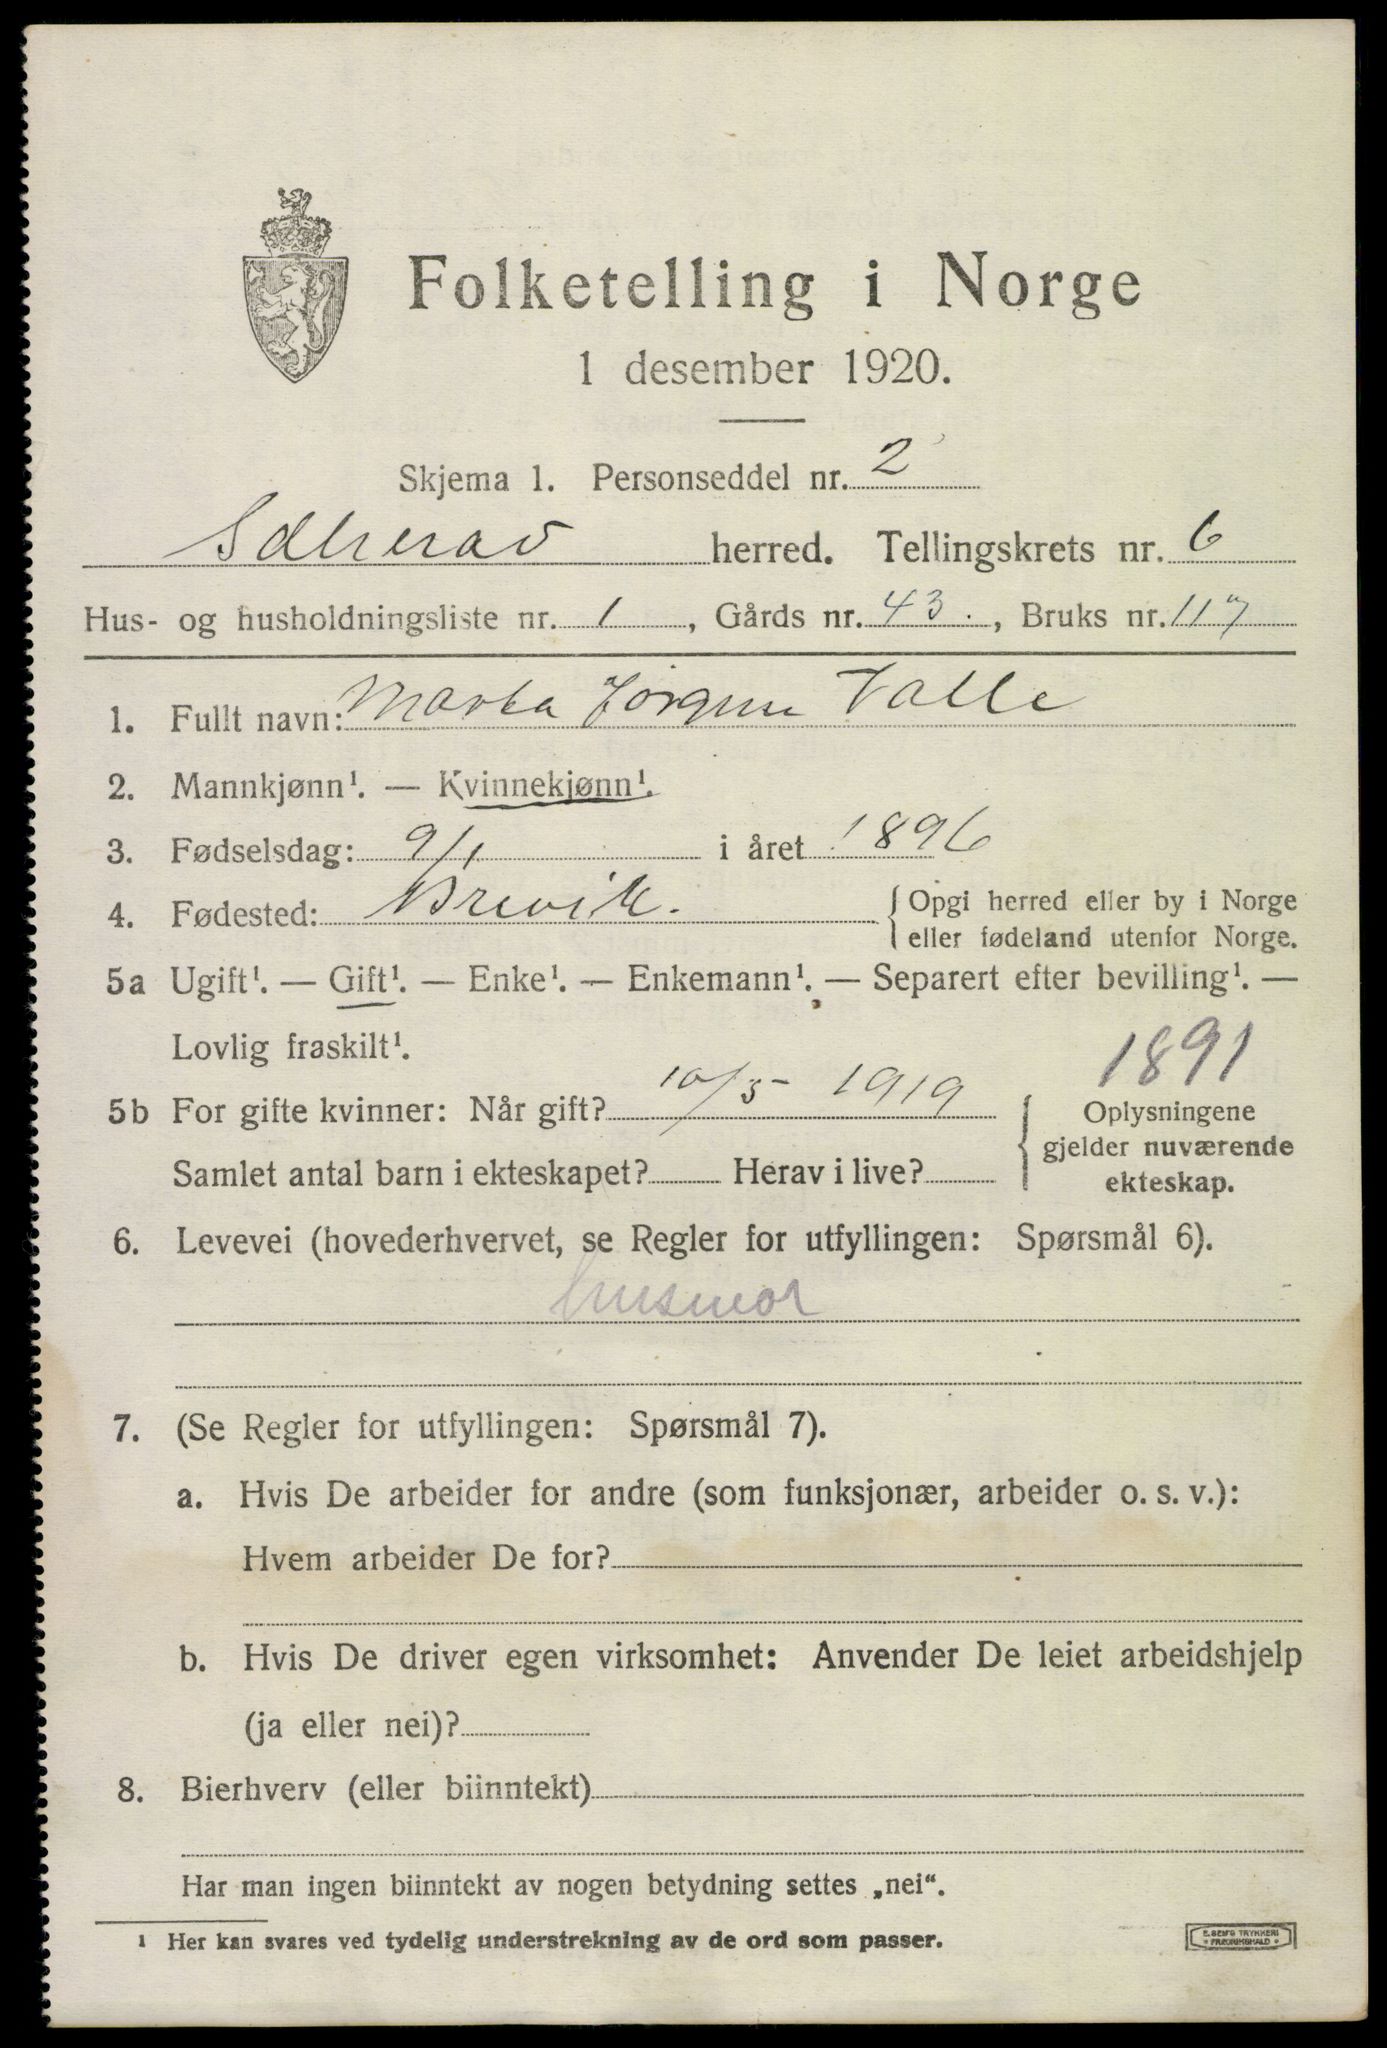 Folketelling i Norge
1 desember 1920.
Skjema 1. Personseddel nr. 2
herred. Tellingskrets nr. 6
Hus- og husholdningsliste nr. 1, Gårds nr. 43., Bruks nr. 117
1. Fullt navn: Marta Jörgine Valle
2. Mannkjønn¹. — Kvinnekjønn¹.
3. Fødselsdag: 9/1 i året 1896
4. Fødested: Brevik. { Opgi herred eller by i Norge
eller fødeland utenfor Norge.
5a Ugift¹. — Gift¹. — Enke¹. — Enkemann¹. — Separert efter bevilling¹. —
Lovlig fraskilt¹.
1891
5b For gifte kvinner: Når gift? 10/5 - 1919 { Oplysningene
gjelder nuværende
Samlet antal barn i ekteskapet? Herav i live?
ekteskap.
6. Levevei (hovederhvervet, se Regler for utfyllingen: Spørsmål 6).
husmor
7. (Se Regler for utfyllingen: Spørsmål 7).
a. Hvis De arbeider for andre (som funksjonær, arbeider o. s. v.):
Hvem arbeider De for?
b. Hvis De driver egen virksomhet: Anvender De leiet arbeidshjelp
(ja eller nei)?
8. Bierhverv (eller biinntekt)
Har man ingen biinntekt av nogen betydning settes „nei“.
¹ Her kan svares ved tydelig understrekning av de ord som passer.
E. SEM'S TRYKKERI
FREDRIKSHALD